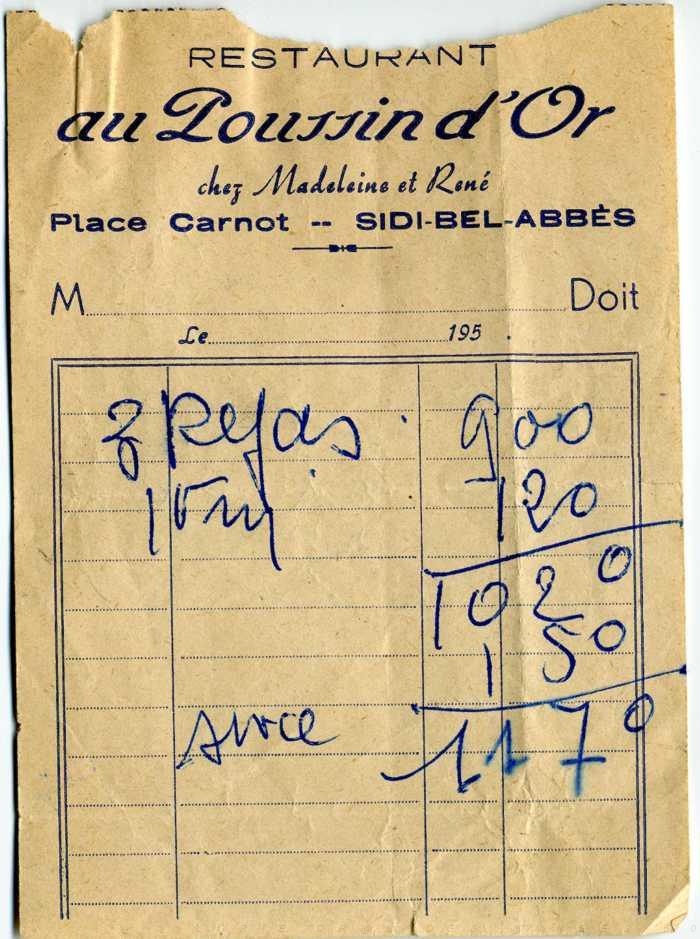 RESTAURANT
au Poussin d'Or
chez Madeleine et René
Place Carnot -- SIDI-BEL-ABBÈS
M Doit
Le 195 .
Repas 900
1 120
1020
150
1170